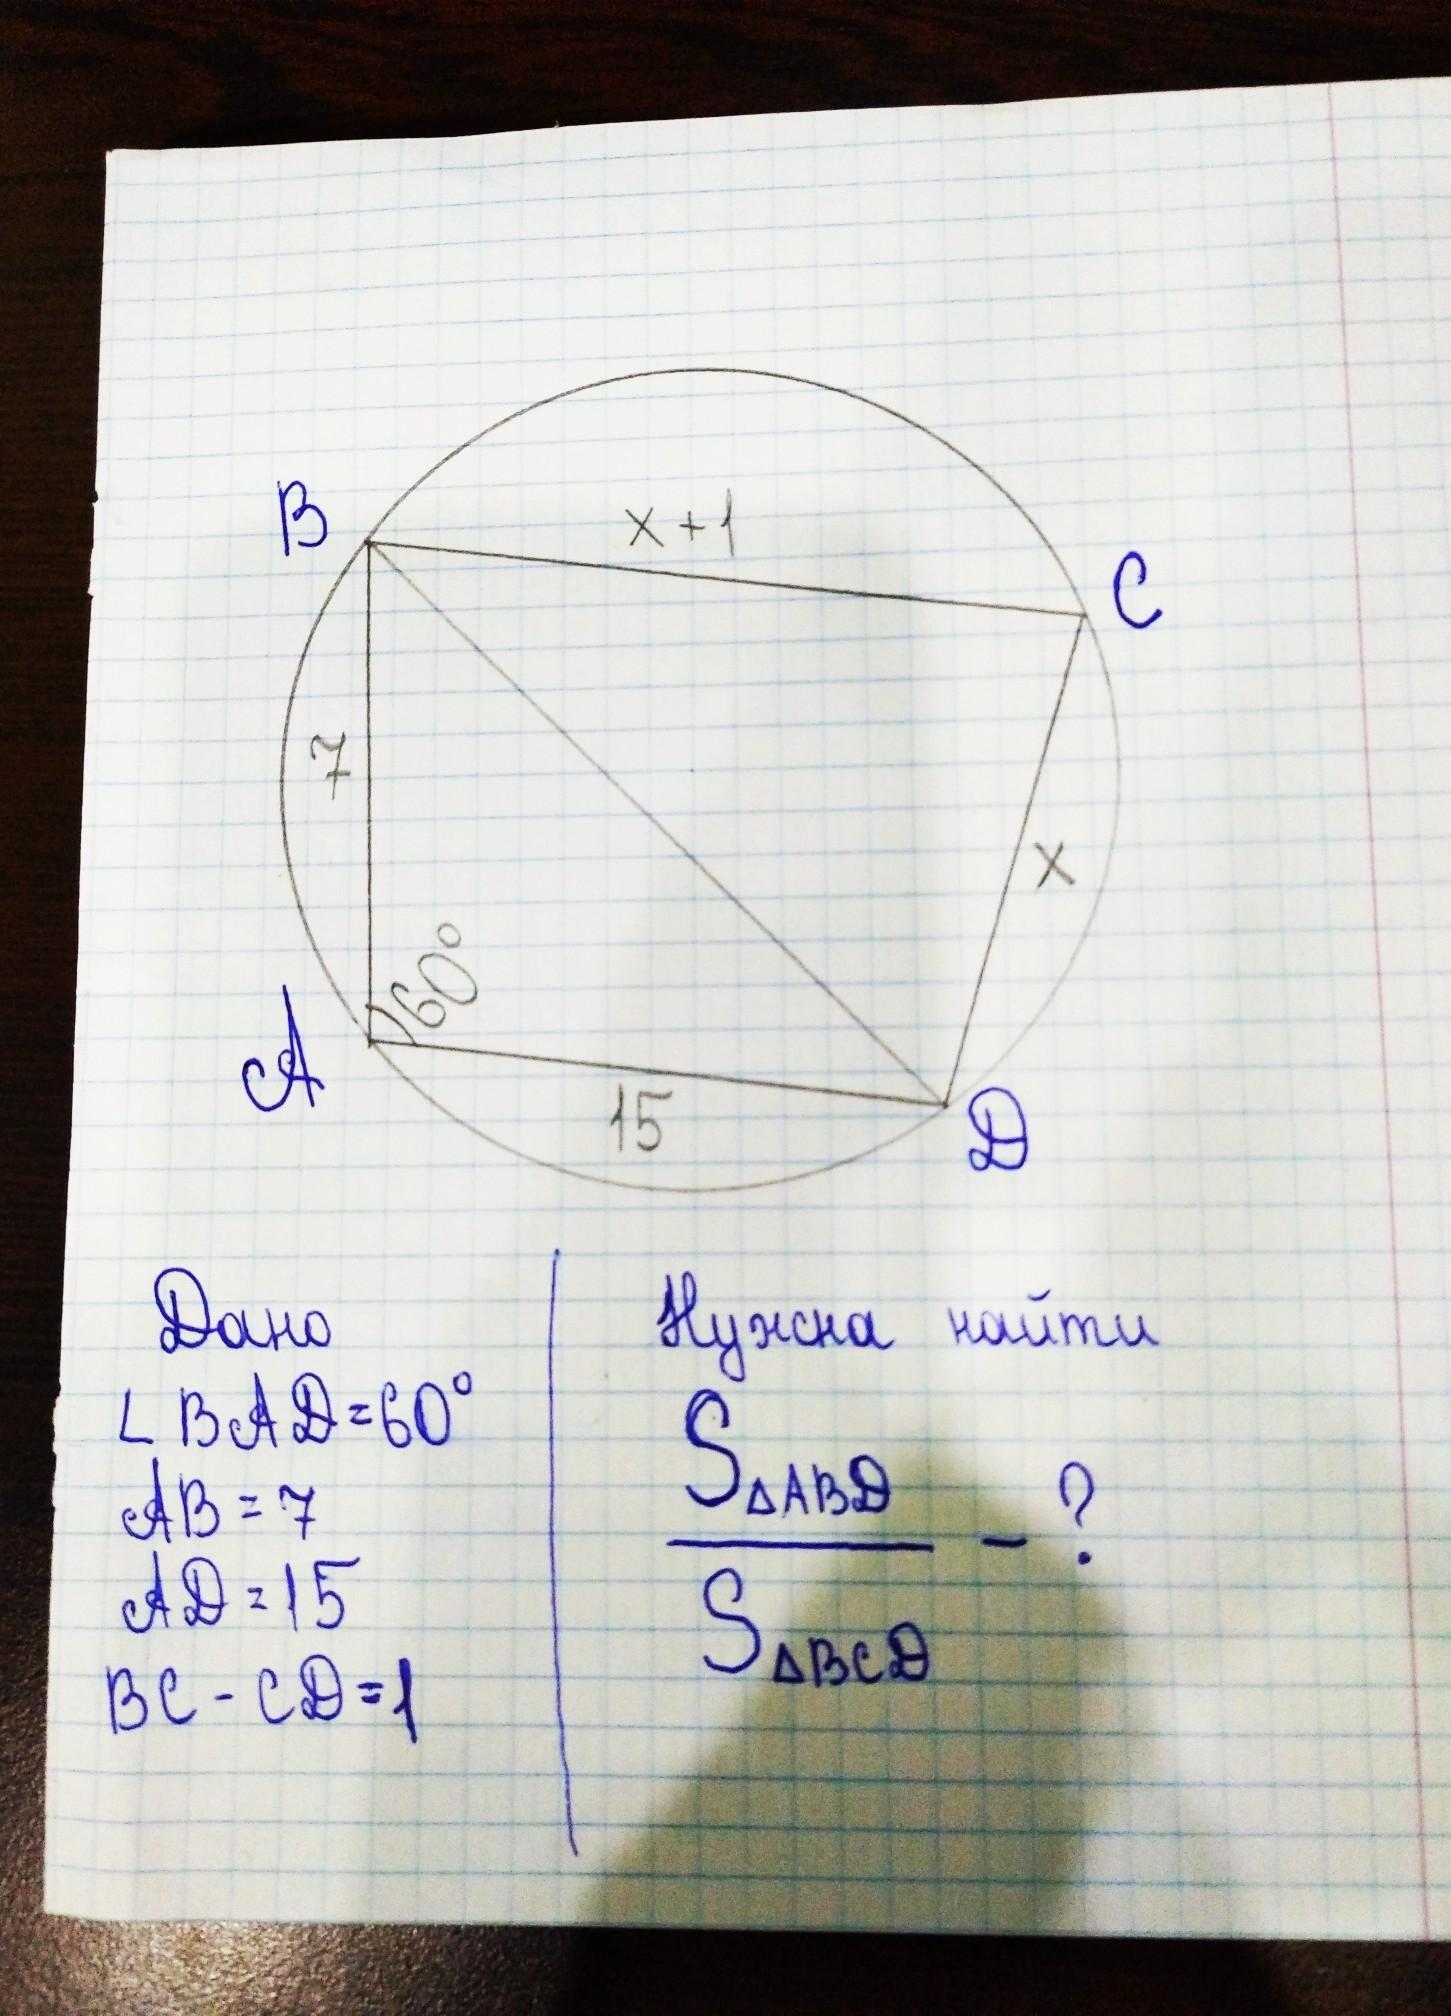 B
x+1
C
7
x
60°
A
15
D
Дано
∠BAD=60°
AB=7
AD=15
BC-CD=1
Нужна найти
S△ABD
S△BCD
- ?